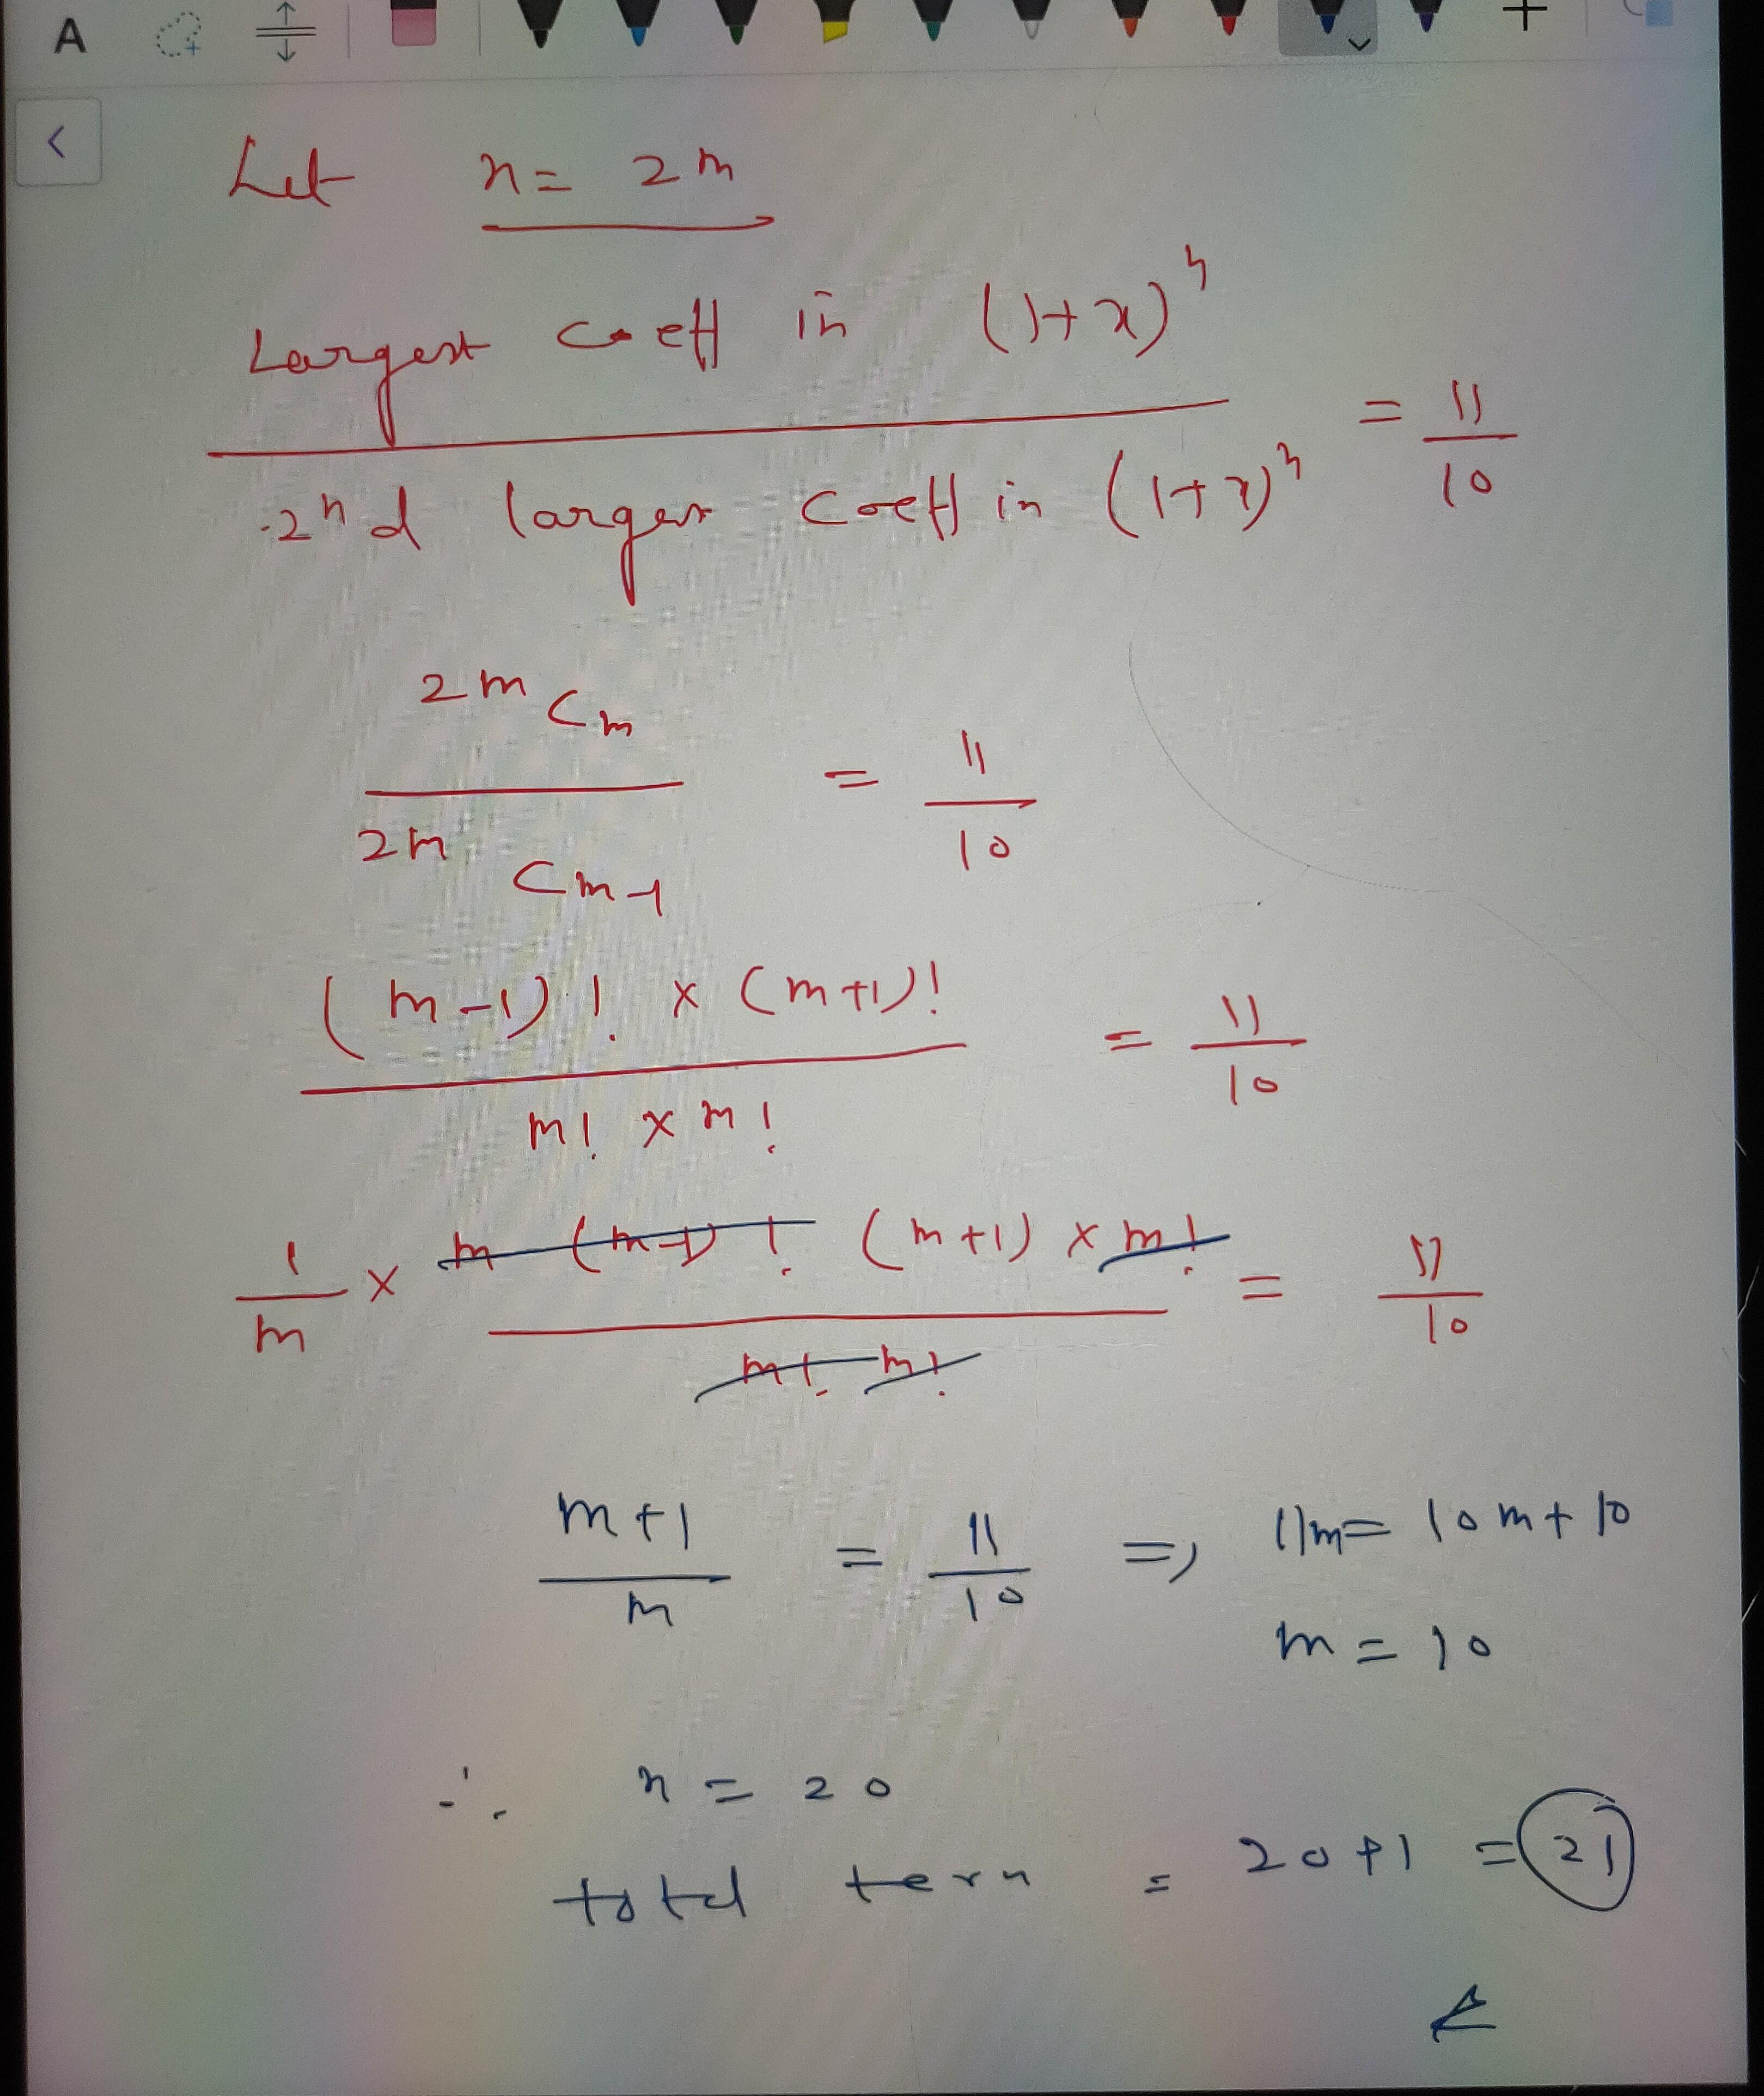 A
Let n = 2m
Largest coeff in (1+x)^n / 2nd largest coeff in (1+x)^n = 11/10
2m C m / 2m C m-1 = 11/10
(m-1)! × (m+1)! / m! × m! = 11/10
1/m × m (m-1)! (m+1) × m! / m! m! = 11/10
m+1 / m = 11/10 => 11m = 10m + 10
m = 10
∴ n = 20
total term = 20+1 = 21